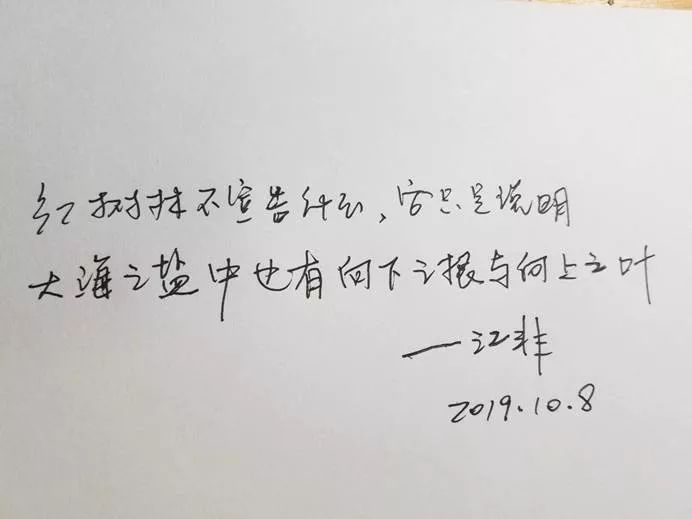 红树林不宣告什么,它只是说明
大海之盐中也有向下之根与向上之叶
—江非
2019.10.8